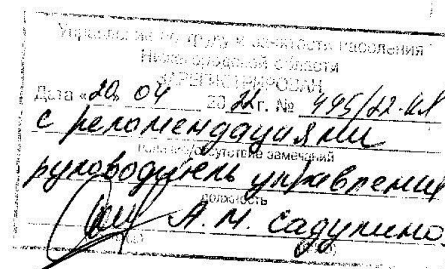 Управление по труду и занятости населения
Нижегородской области
ЗАРЕГИСТРИРОВАН
Дата «20» 04 2022г. № 445/22-кд
с рекомендациями
наличие/отсутствие замечаний
руководитель управления
должность
А.М. Садулина